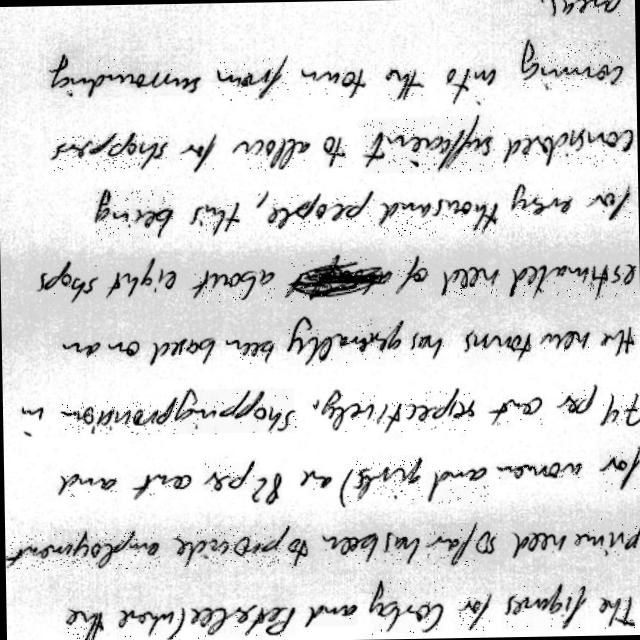 The figures for Corby and Peterlee (where the
prime need so far has been to provide employment
for women and girls) are 82 per cent and
74 per cent respectively. Shopping provision in
the new towns has generally been based on an
estimated need of about eight shops
for every thousand people, this being
considered sufficient to allow for shoppers
coming into the town from surrounding
areas.